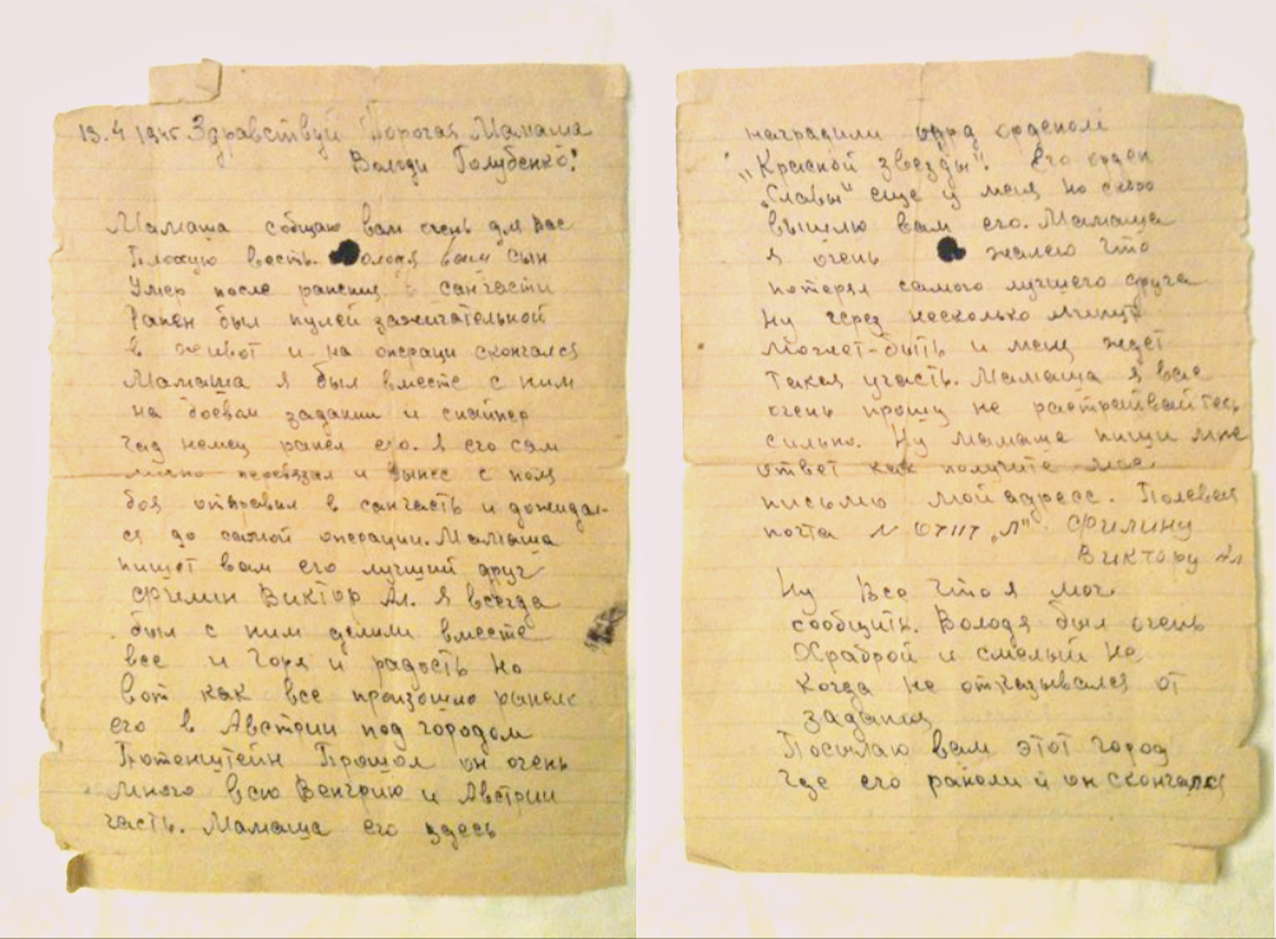 13.4 1945 Здравствуй Дорогая Мамаша
Володи Голубенко!
Мамаша собщаю вам очень для вас
Плохую весть. Володя ваш сын
Умер после ранения в санчасти
Ранен был пулей зажигательной
в живот и на операци скончался
Мамаша я был вместе с ним
на боевом задании и снайпер
гад немец ранел его. Я его сам
лично перевязал и вынес с поля
боя отправил в санчасть и дожидал-
ся до самой операции. Мамаша
пишет вам его лучший друг
Филин Виктор Ал. Я всегда
был с ним делили вместе
все и Горя и радость Но
вот как все произошло ранело
его в Австрии под городом
Потенштейн Прошол он очень
много всю Венгрию и Австрии
часть. Мамаша его здесь
наградили орденом
„Красной звезды". Его орден
„Славы" еще у меня но скоро
вышлю вам его. Мамаша
я очень жалею что
потерял самого лучшего друга
Ну через несколько минут
может-быть и меня ждет
такая участь. Мамаша я вас
очень прошу не растраивайтесь
сильно. Ну мамаша пиши мне
ответ как получите мое
письмо мой адресс. Полевая
почта N 07117 „Л" Филину
Виктору Ал
Ну Все что я мог
сообщить. Володя был очень
Храброй и смелый Не
когда не отказывался от
задания
Посылаю вам этот город
Где его раноли и он скончался